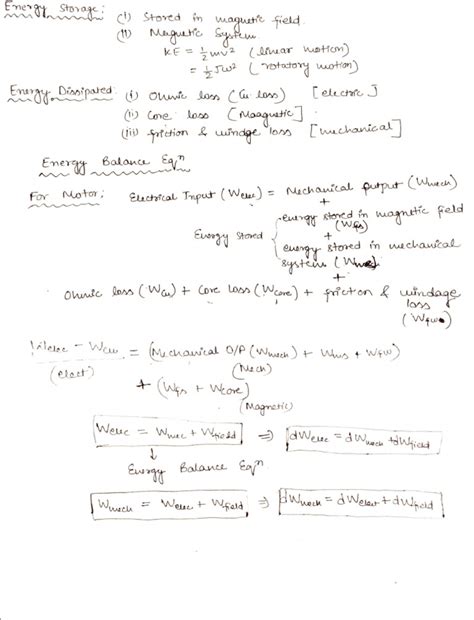 Energy Storage: (i) Stored in magnetic field.
(ii) Magnetic System
KE = 1/2 mv² (linear motion)
= 1/2 Jω² (rotatory motion)
Energy Dissipated: (i) Ohmic loss (Cu loss) [electric]
(ii) Core loss [Maagnetic]
(iii) friction & windge loss [mechanical]
Energy Balance Eqⁿ
For Motor: Electrical Input (Welec) = Mechanical output (Wmech)
+
Energy stored { energy stored in magnetic field (Wfs)
+
energy stored in mechanical
system (Wms)
+
Ohmic loss (Wcu) + Core loss (Wcore) + friction & windage
loss
(Wfw)
Welec − Wcu = (Mechanical O/P (Wmech) + Wms + Wfw)
(elect) (Mech)
+ (Wfs + Wcore)
(Magnetic)
Welec = Wmec + Wfield ⇒ dWelec = dWmech + dWfield
↓
Energy Balance Eqⁿ
Wmech = Welec + Wfield ⇒ dWmech = dWelect + dWfield